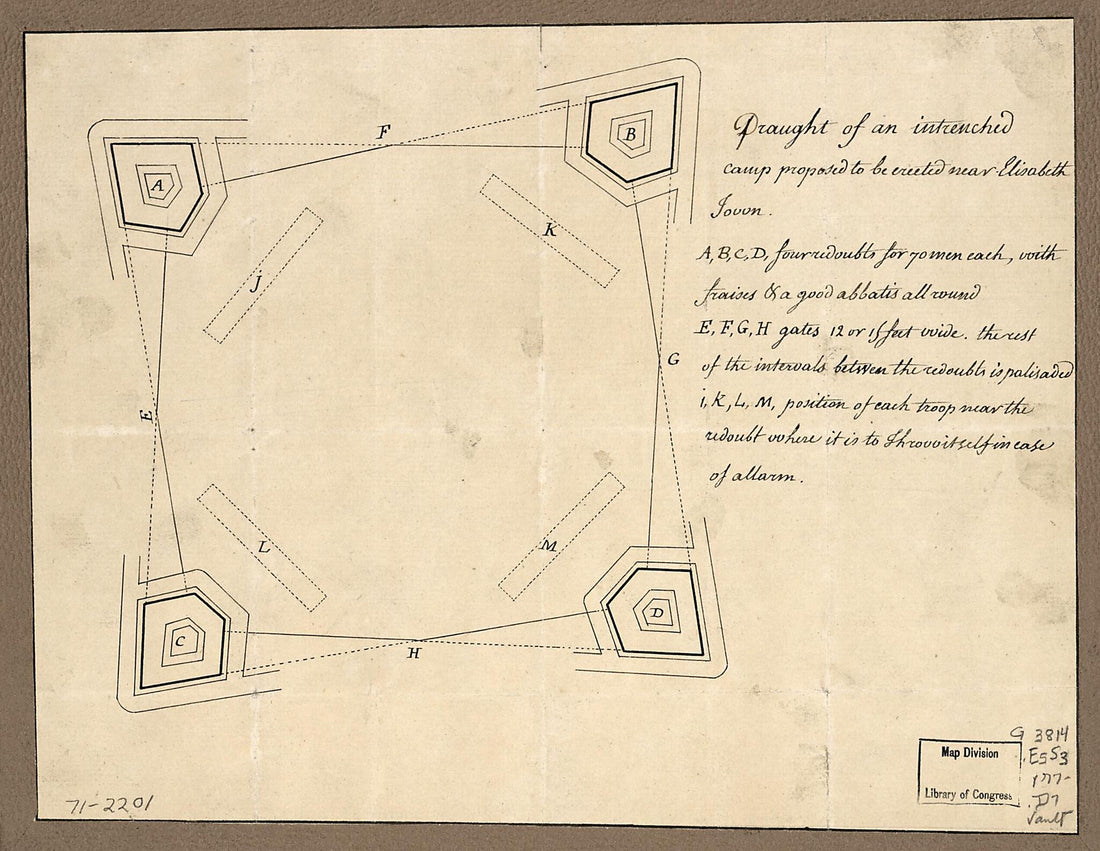 Draught of an intrenched
camp proposed to be erected near Elisabeth
Town.
A, B, C, D, four redoubts for 70 men each, with
fraises & a good abbatis all round
E, F, G, H gates 12 or 15 feet wide. the rest
of the intervals betwen the redoubts is palisaded
i, K, L, M, position of each troop near the
redoubt where it is to throw itself in case
of allarm.
F
B
A
K
J
G
E
L
M
D
C
H
Map Division
Library of Congress
G 3814
.E5S3
177-
.D7
Vault
71-2201